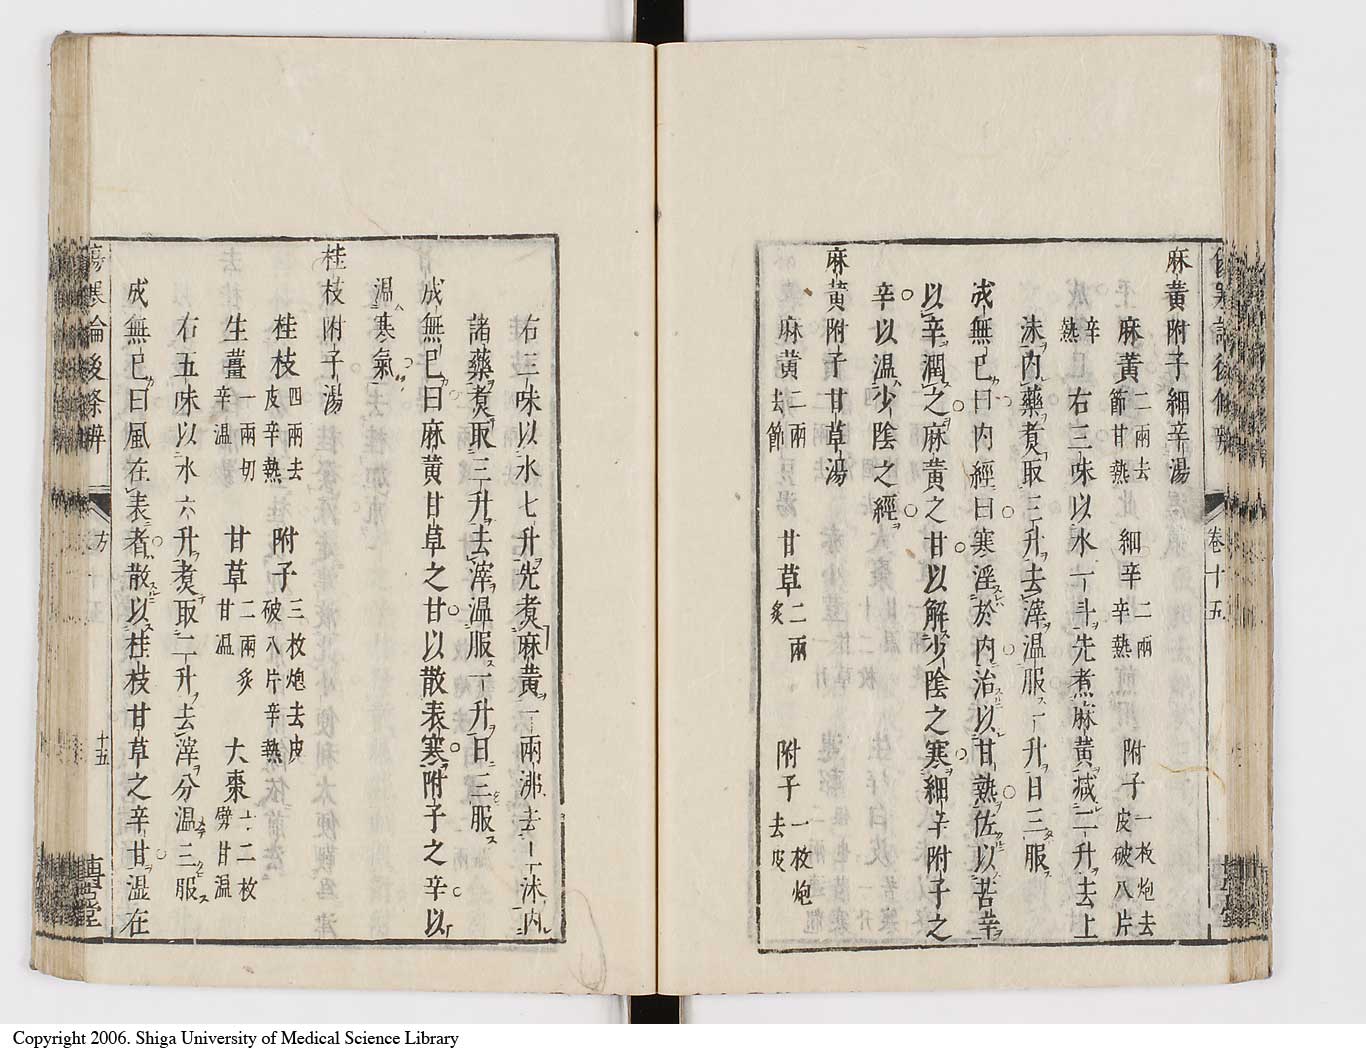 麻黄附子細辛湯
麻黄 二兩去節甘熱 細辛 二兩辛熱 附子 一枚炮去皮破八片辛熱
右三味以水一斗先煮麻黄減二升去上
沫内藥煮取三升去滓温服一升日三服
成無已曰内經曰寒淫於内治以甘熱佐以苦辛
以辛潤之麻黄之甘以解少陰之寒細辛附子之
辛以温少陰之經
麻黄附子甘草湯
麻黄 二兩去節 甘草 二兩炙 附子 一枚炮去皮
卷十五
右三味以水七升先煮麻黄一兩沸去上沫内
諸藥煮取三升去滓温服一升日三服
成無已曰麻黄甘草之甘以散表寒附子之辛以
温寒氣
桂枝附子湯
桂枝 四兩去皮辛熱 附子 三枚炮去皮破八片辛熱
生薑 一兩切辛温 甘草 二兩炙甘温 大棗 十二枚劈甘温
右五味以水六升煮取二升去滓分温三服
成無已曰風在表者散以桂枝甘草之辛甘温在
傷寒論後條辨 方 十五
Copyright 2006. Shiga University of Medical Science Library